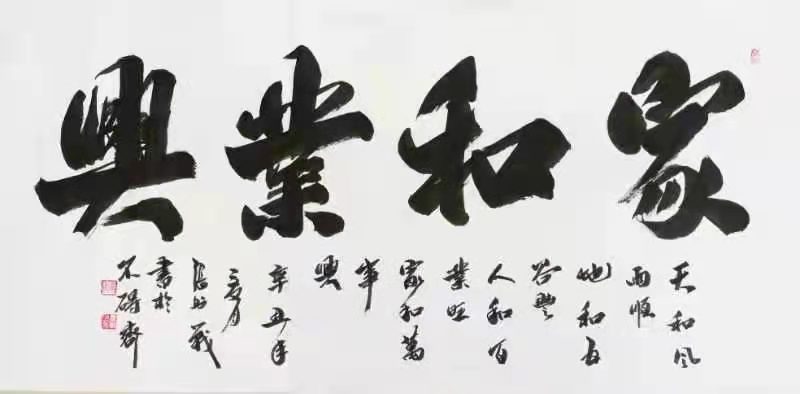 家和業興
天和风
雨順
地和五
谷豐
人和百
業旺
家和萬
事
興
辛丑年
夏月
書於
不碍齋